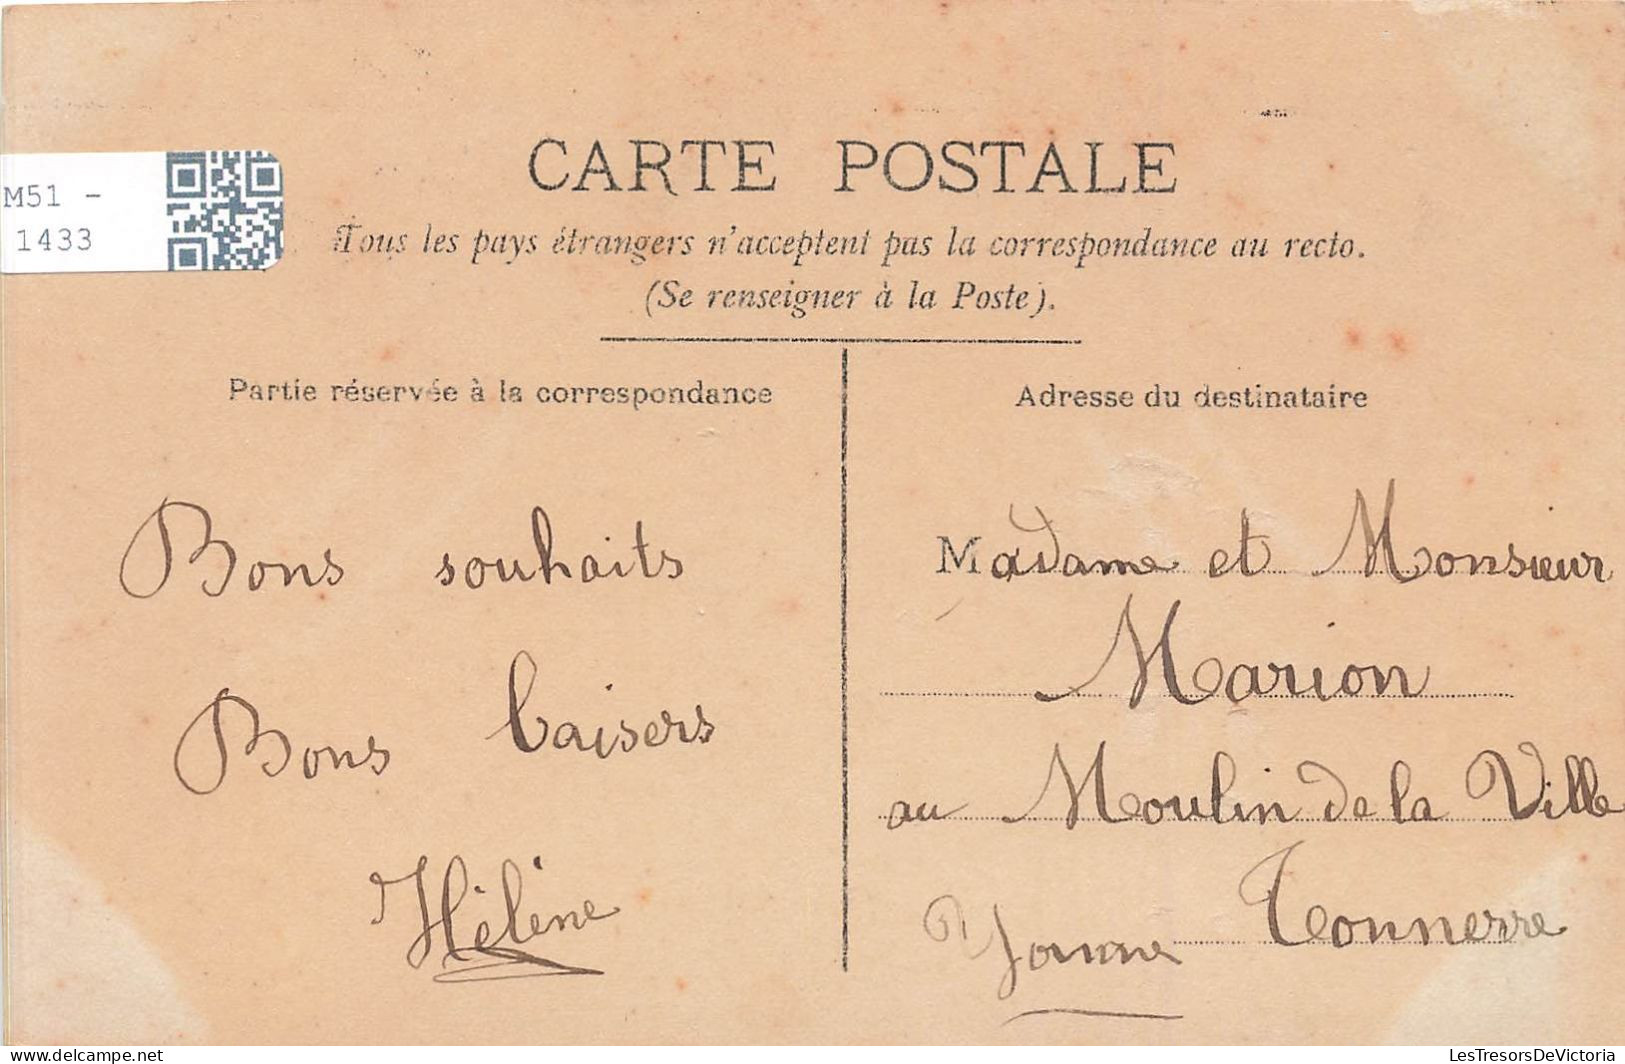 CARTE POSTALE
Tous les pays étrangers n'acceptent pas la correspondance au recto.
(Se renseigner à la Poste).
M51 -
1433
Partie réservée à la correspondance
Bons souhaits
Bons baisers
Hélène
Adresse du destinataire
Madame et Monsieur
Marion
au Moulin de la Ville
Tonnerre
Yonne
LesTresorsDeVictoria